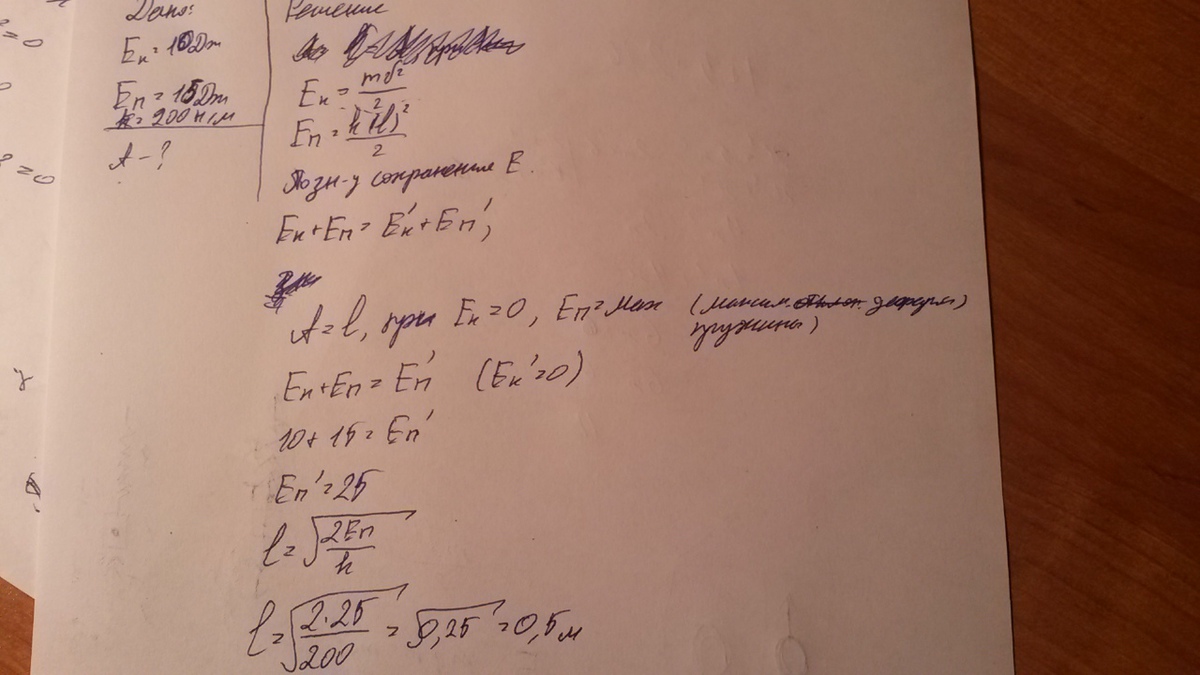 Дано:
Eк = 10Дж
Eп = 15Дж
k = 200 н/м
A - ?
Решение
Eк = mv²/2
Eп = k(l)²/2
По зн-у сохранения E.
Eк + Eп = Eк' + Eп',
A = l, при Eк = 0, Eп = Max (максим. деформ)
пружины)
Eк + Eп = Eп' (Eк' = 0)
10 + 15 = Eп'
Eп' = 25
l = √(2Eп/k)
l = √(2·25/200) = √0,25 = 0,5 м
² = 0
² = 0